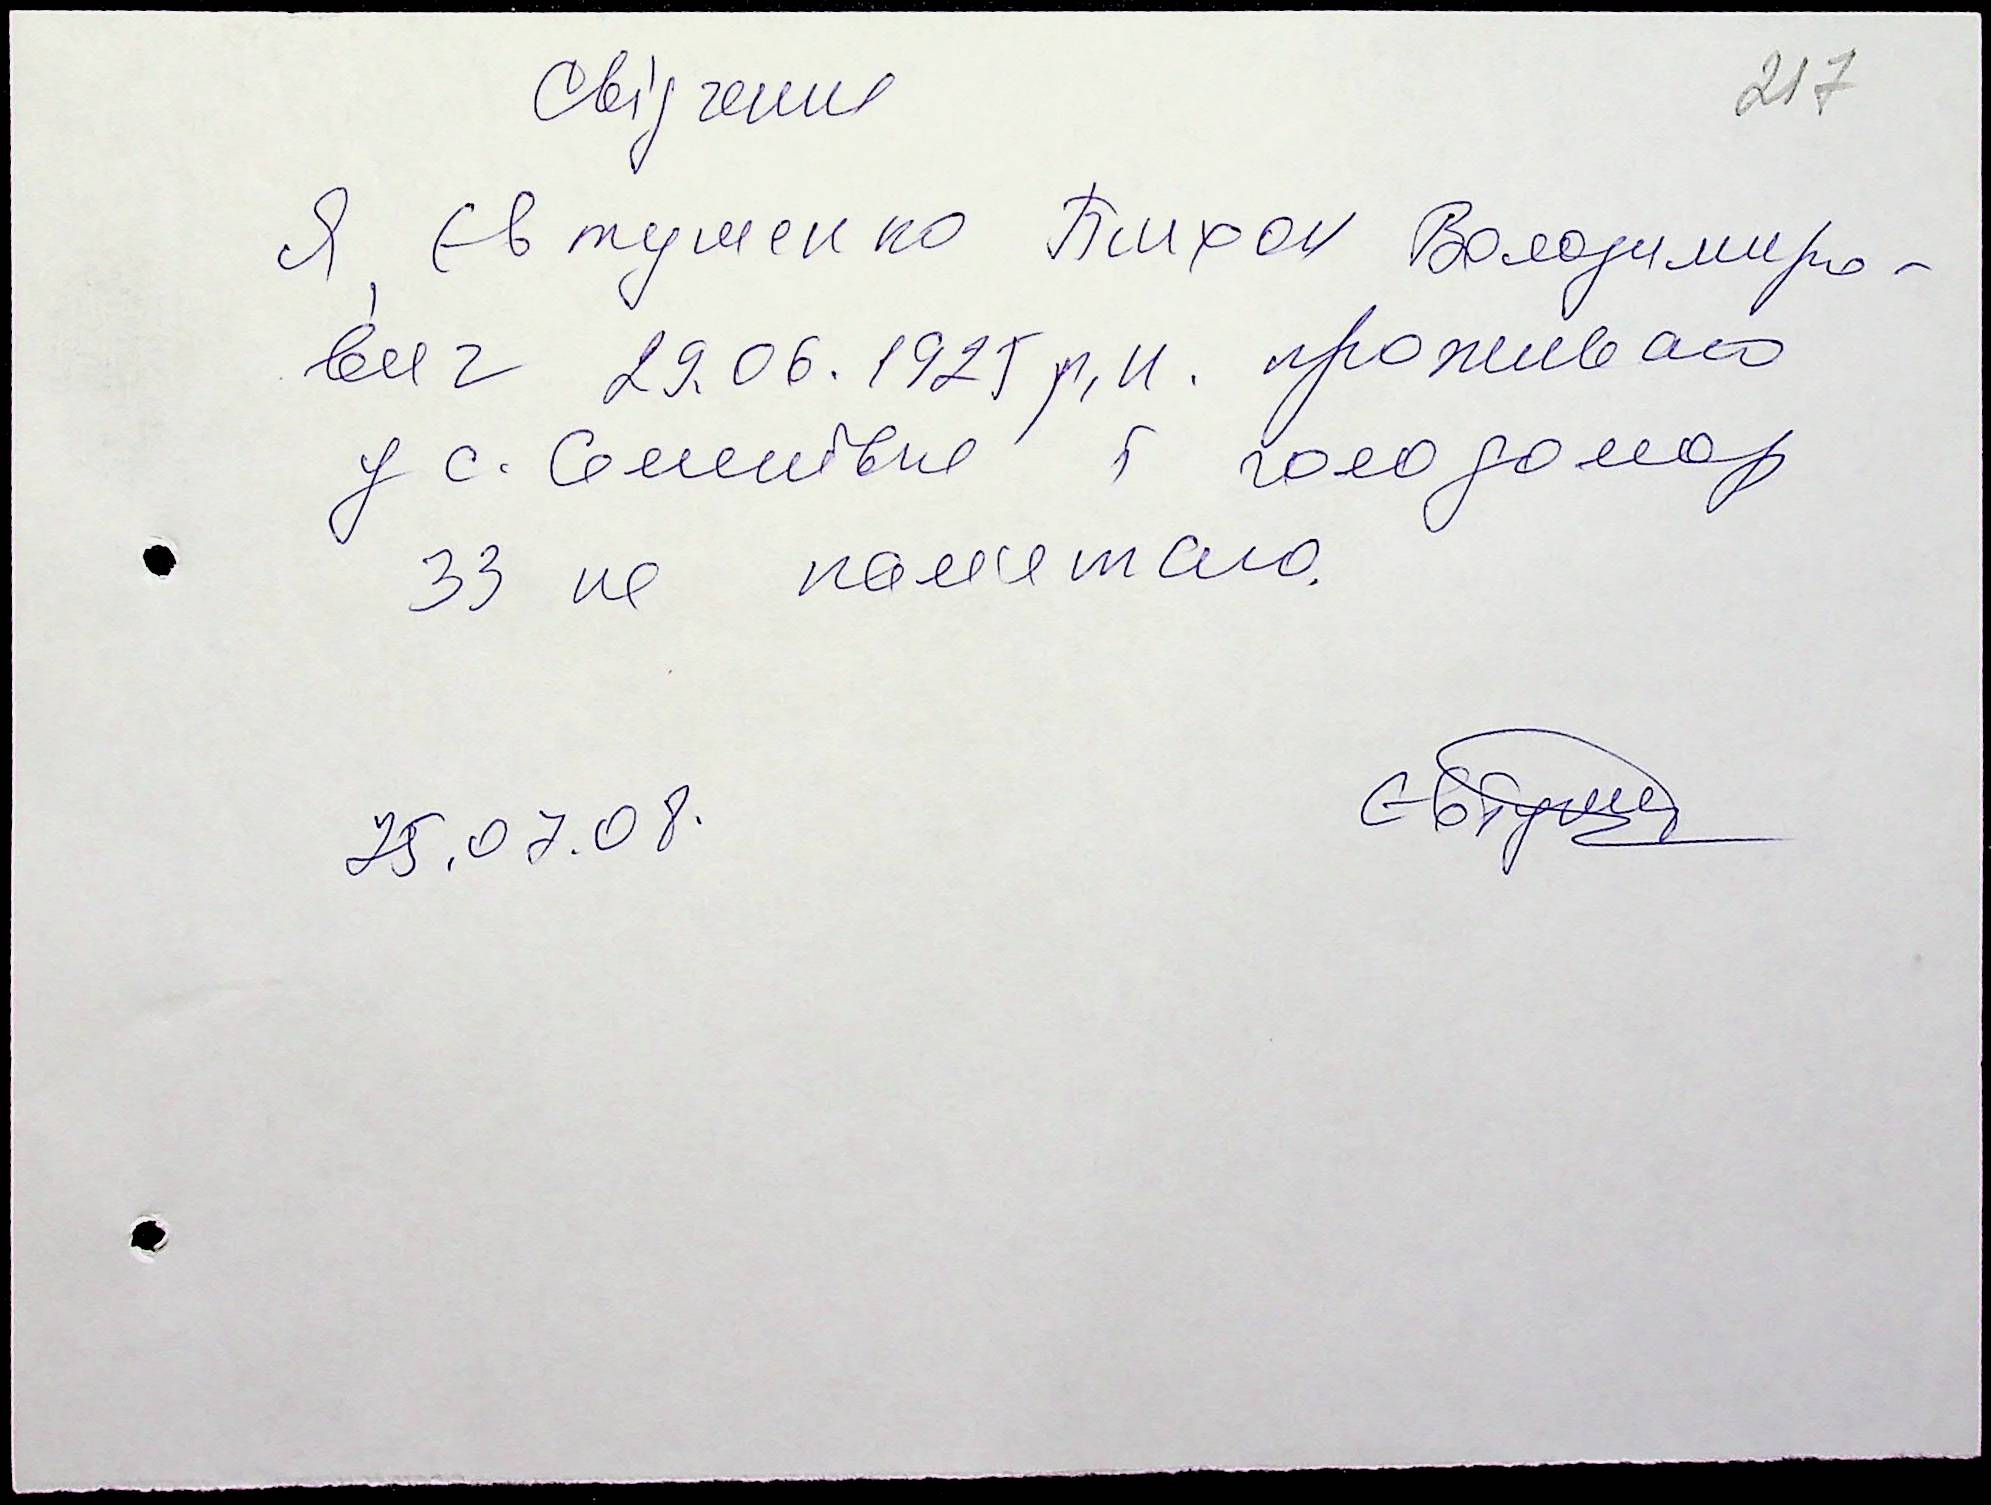 217
Свідчення
Я, Євтушенко Тихон Володимиро-
вич 29.06.1925 р.н. проживаю
у с. Семенівне і голодомор
33 не паметаю.
25.07.08. Євтуш